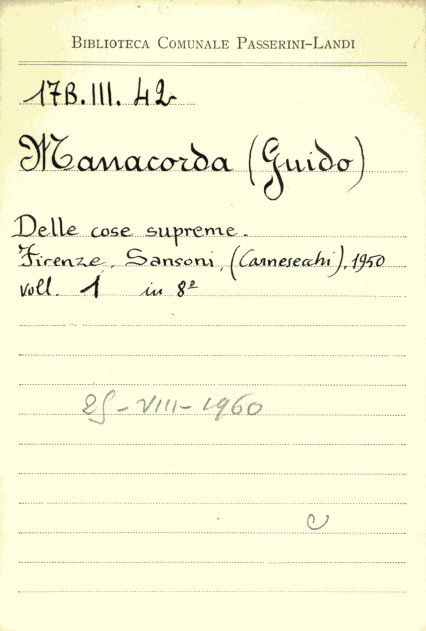 BIBLIOTECA COMUNALE PASSERINI-LANDI
17B.III.42
Manacorda (Guido)
Delle cose supreme.
Firenze, Sansoni, (Carnesecchi), 1950
voll. 1 in 8º
-VIII-1960